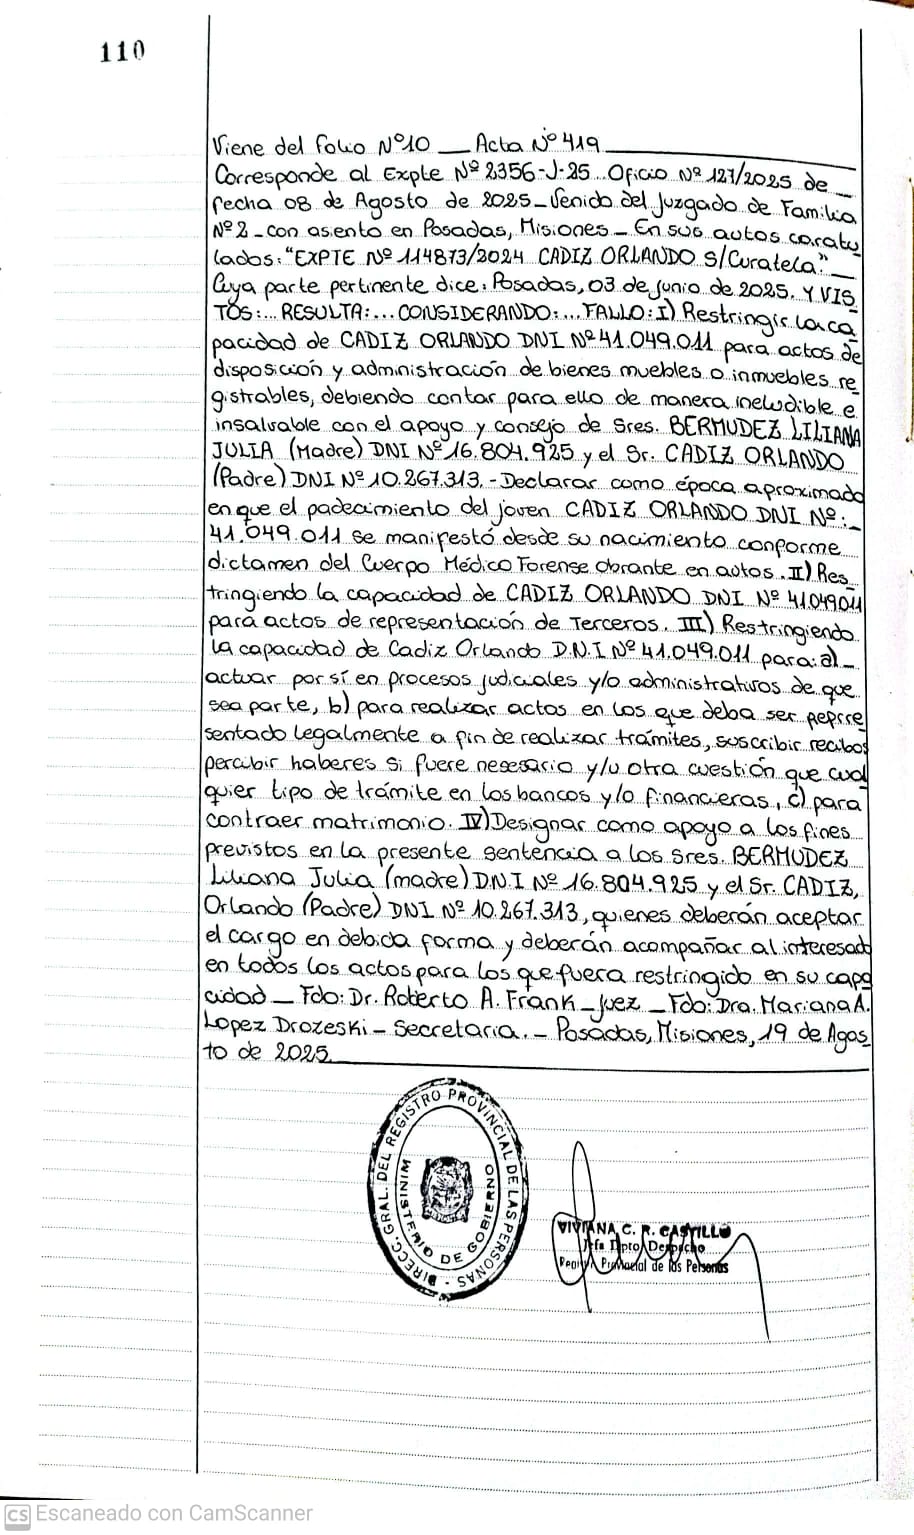 110
Viene del folio Nº10 __ Acta Nº 419
Corresponde al Expte Nº 2356-J-25. Oficio Nº 127/2025 de
fecha 08 de Agosto de 2025_ Venido del Juzgado de Familia
Nº 2 - con asiento en Posadas, Misiones _ En sus autos caratu
lados: "EXPTE Nº 114873/2024 CADIZ ORLANDO S/Curatela" _
Cuya parte pertinente dice: Posadas, 03 de junio de 2025. Y VIS
TOS:... RESULTA:... CONSIDERANDO:... FALLO: I) Restringir la ca
pacidad de CADIZ ORLANDO DNI Nº 41.049.011 para actos de
disposición y administración de bienes muebles o inmuebles re
gistrables, debiendo contar para ello de manera ineludible e
insalvable con el apoyo y consejo de Sres. BERMUDEZ LILIANA
JULIA (Madre) DNI Nº 16.804.925 y el Sr. CADIZ ORLANDO
(Padre) DNI Nº 10.267.313. - Declarar como época aproximada
en que el padecimiento del joven CADIZ ORLANDO DNI Nº: _
41.049.011 se manifestó desde su nacimiento conforme
dictamen del Cuerpo Médico Forense obrante en autos. II) Res
tringiendo la capacidad de CADIZ ORLANDO DNI Nº 41.049.011
para actos de representación de Terceros. III) Restringiendo
la capacidad de Cadiz Orlando D.N.I Nº 41.049.011 para: a) _
actuar por sí en procesos judiciales y/o administrativos de que
sea parte, b) para realizar actos en los que deba ser Repre
sentado legalmente a fin de realizar trámites, suscribir recibos
percibir haberes si fuere nesesario y/u otra cuestión que cual
quier tipo de trámite en los bancos y/o financieras, c) para
contraer matrimonio. IV) Designar como apoyo a los fines
previstos en la presente sentencia a los Sres. BERMUDEZ
Liliana Julia (madre) D.N.I Nº 16.804.925 y el Sr. CADIZ,
Orlando (Padre) DNI Nº 10.267.313, quienes deberán aceptar
el cargo en debida forma y deberán acompañar al interesado
en todos los actos para los que fuera restringido en su capa
cidad _ Fdo: Dr. Roberto A. Frank - Juez _ Fdo: Dra. Mariana A.
Lopez Drozeski - Secretaria. - Posadas, Misiones, 19 de Agos
to de 2025
DIRECC. GRAL. DEL REGISTRO PROVINCIAL DE LAS PERSONAS -
MINISTERIO DE GOBIERNO
VIVIANA C. R. CASTILLO
Jefa Dpto. Despacho
Registro Provincial de las Personas
CS Escaneado con CamScanner